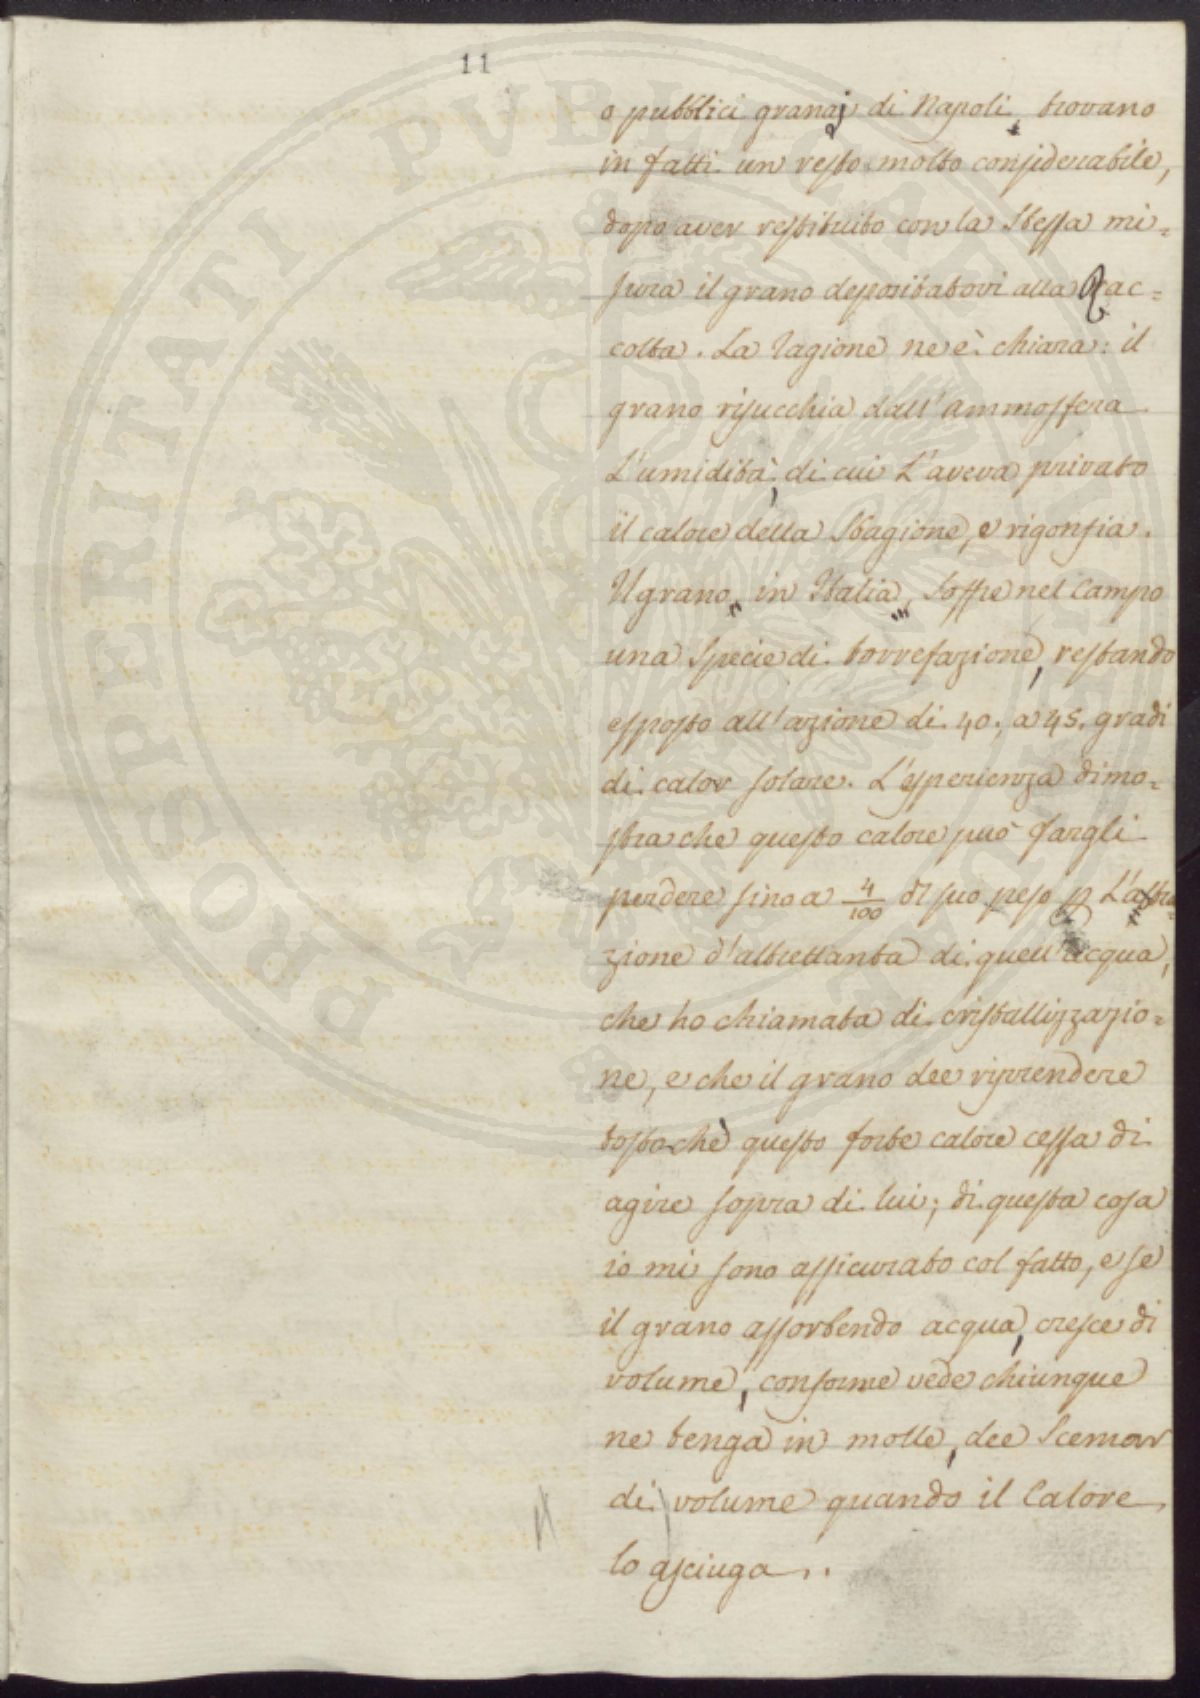 11
o pubblici granaj di Napoli, trovano
in fatti un resto molto considerabile,
dopo aver restituito con la Stessa mi=
sura il grano depositatovi alla Rac=
colta. La ragione ne è chiara: il
grano risucchia dall'ammosfera
L'umidità, di cui L'aveva privato
il calore della Stagione, e rigonfia.
Il grano, in Italia, soffre nel Campo
una Specie di torrefazione, restando
esposto all'azione di 40. a 45. gradi
di calor solare. L'esperienza dimo=
stra che questo calore può fargli
perdere sino a 4/100 di suo peso p L'astra=
zione d'altrettanta di quell'acqua,
che ho chiamata di cristallizzazio=
ne, e che il grano dee riprendere
tosto chè questo forte calore cessa di
agire sopra di lui; di questa cosa
io mi sono assicurato col fatto, e se
il grano assorbendo acqua, cresce di
volume, conforme vede chiunque
ne tenga in molle, dee Scemar
di volume quando il Calore
lo asciuga..
PROSPERITATI PUBLICAE AUGENDAE